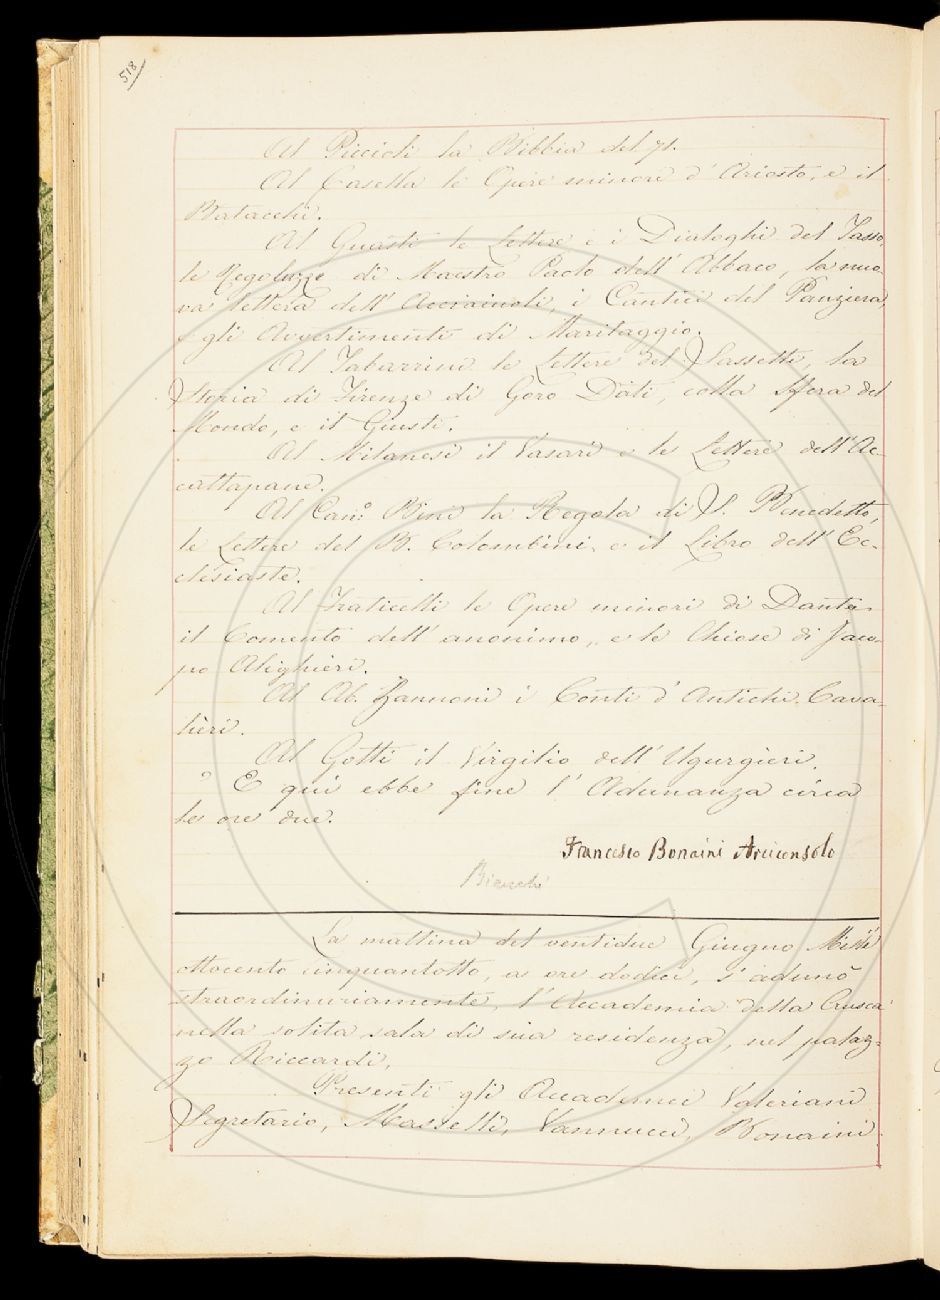 518
Al Piccioli la Bibbia del 71.
Al Casella le Opere minori d'Ariosto, e il
Batacchi.
Al Guasti le Lettere e i Dialoghi del Tasso,
le Regoluzze di Maestro Paolo dell'Abbaco, la nuo-
va lettera dell'Acciainoli, i Cantici del Panziera,
e gli Avvertimenti di Maritaggio.
Al Tabarrini le Lettere del Sassetti, la
Storia di Firenze di Goro Dati, colla Sfera del
Mondo, e il Giusti.
Al Milanesi il Vasari e le Lettere dell'Ac-
cattapane.
Al Can.º Bini la Regola di S. Benedetto,
le Lettere del B. Colombini, e il Libro dell'Ec-
clesiaste.
Al Fraticelli le Opere minori di Dante
il Comento dell'anonimo, e le Chiose di Jaco-
po Alighieri.
Al Ab. Zannoni i Conti d'Antichi Cava-
lieri.
Al Gotti il Virgilio dell'Ugurgieri.
E qui ebbe fine l'Adunanza circa
le ore due.
Francesco Bonaini Arciconsolo
Bianchi
La mattina del ventidue Giugno Mille
ottocento cinquantotto, a ore dodici, s'adunò
straordinariamente, l'Accademia della Crusca
nella solita sala di sua residenza, nel palaz-
zo Riccardi.
Presenti gli Accademici Valeriani
Segretario, Masselli, Vannucci, Bonaini